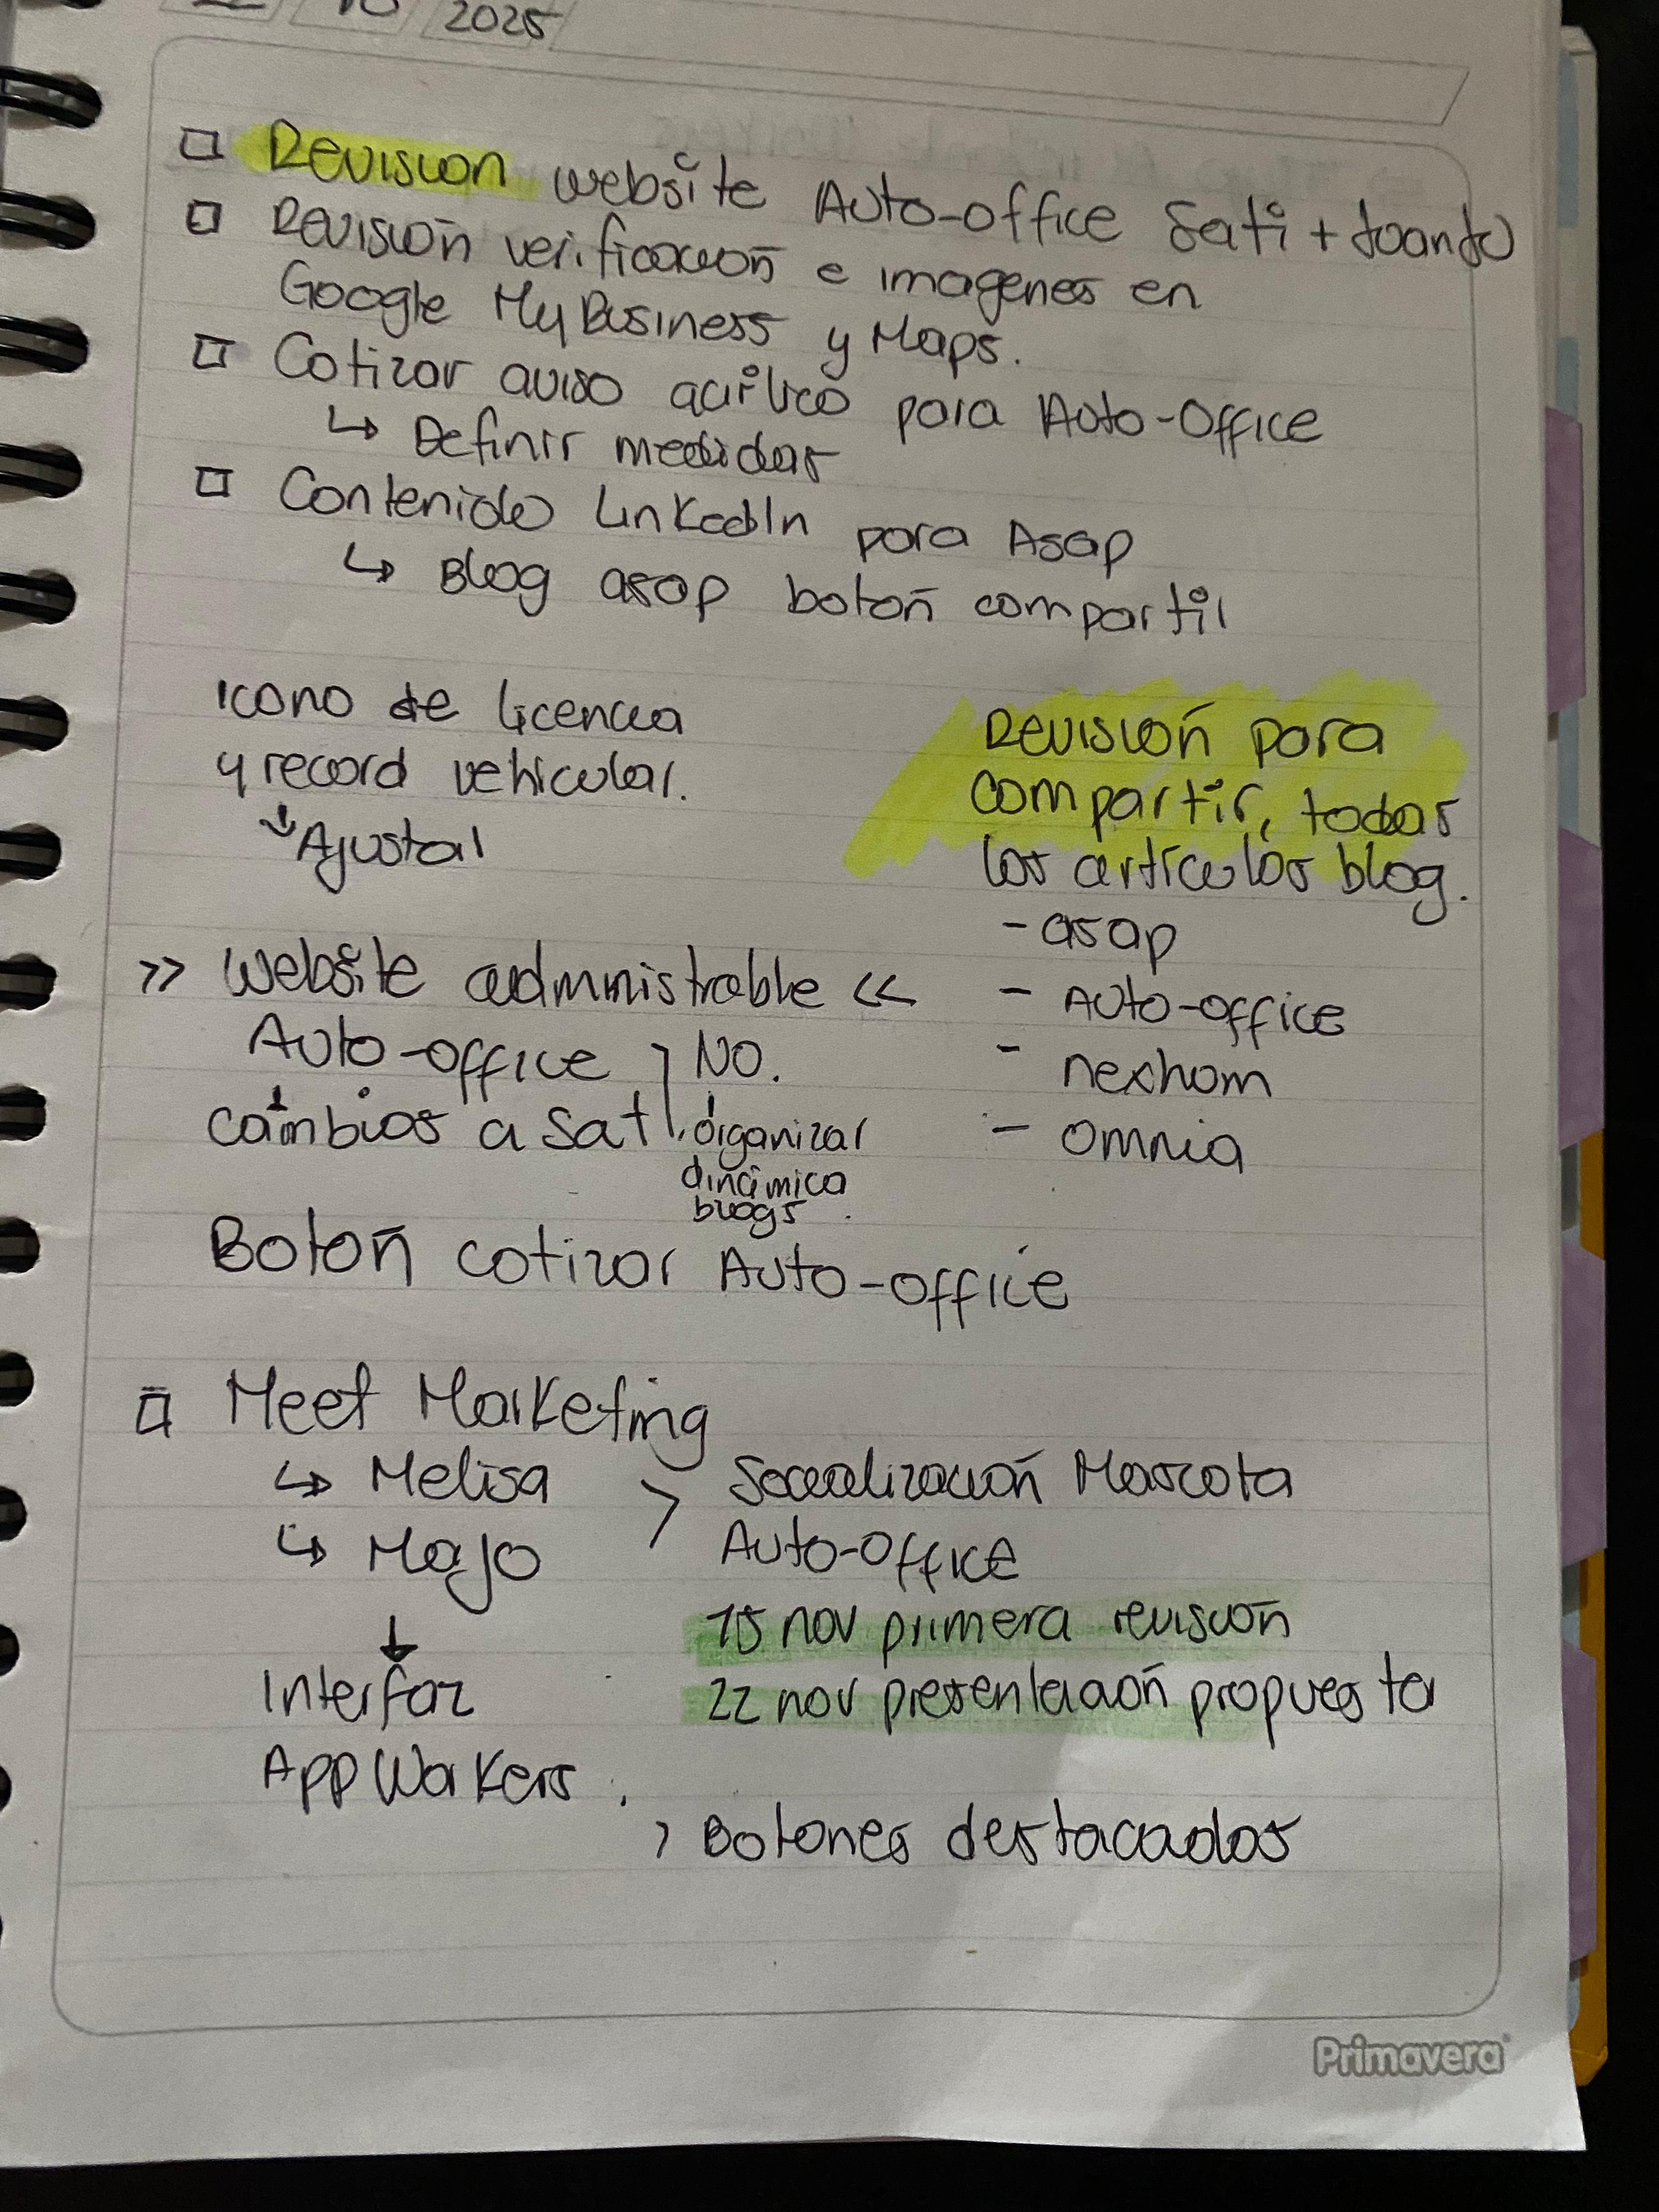 2025
Revisión website Auto-office Sati + Juanfo
Revisión verificación e imagenes en
Google My Business y Maps.
Cotizar aviso acrílico para Auto-Office
↳ Definir medidas
Contenido LinkedIn para Asap
↳ Blog asap botón compartir
Icono de licencia
y record vehicular.
↓ Ajustar
Revisión para
compartir, todas
los artículos blog.
- asap
- Auto-office
- nexhom
- omnia
>> Website administrable <<
Auto-office } NO.
cambios a Sati. organizar
dinámica
blogs
Botón cotizar Auto-office
Meet Marketing
↳ Melisa
↳ Majo
> Socialización Mascota
Auto-Office
15 nov primera revisión
22 nov presentación propuesta
↓
Interfaz
App Workers.
> Botones destacados
Primavera